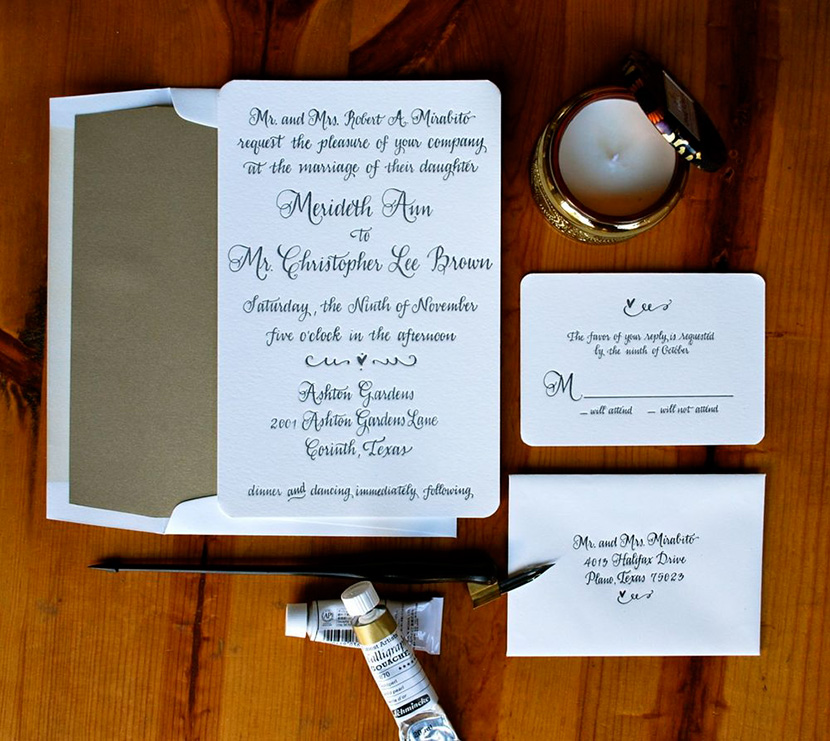 Mr. and Mrs. Robert A. Mirabito
request the pleasure of your company
at the marriage of their daughter
Merideth Ann
to
Mr. Christopher Lee Brown
Saturday, the Ninth of November
five o'clock in the afternoon
Ashton Gardens
2001 Ashton Gardens Lane
Corinth, Texas
dinner and dancing immediately following
The favor of your reply is requested
by the ninth of October
M
will attend will not attend
Mr. and Mrs. Mirabito
4013 Halifax Drive
Plano, Texas 75023
Calligraphy
GOUACHE
Schmincke